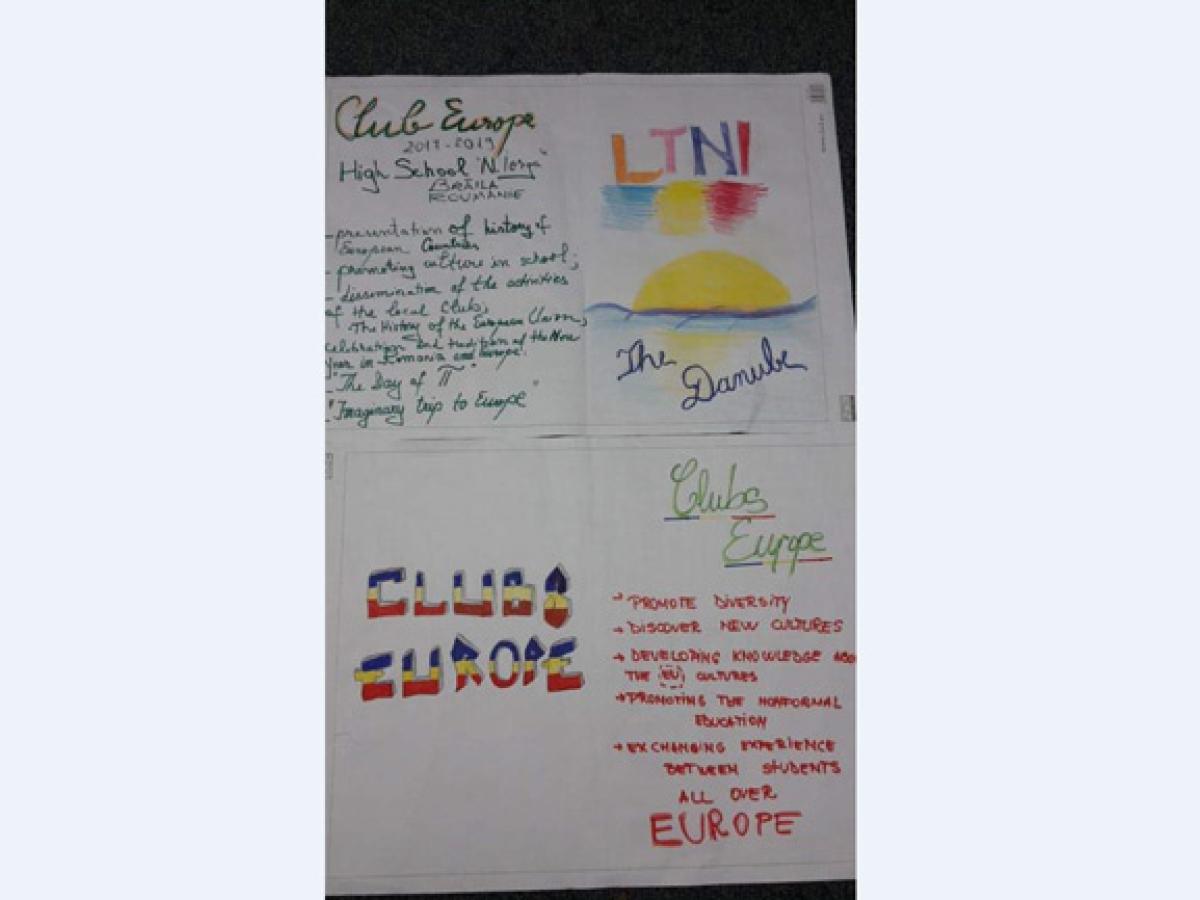 Club Europe
2018-2019
High School "N. Iorga"
BRĂILA
ROUMANIE
- presentation of history of
European Countries
- promoting culture in school;
- dissemination of the activities
of the local Clubs;
The History of the European Union;
Celebration and tradition of the New
Year in Romania and Europe.
- "The Day of π".
- "Imaginary trip to Europe"
LTNI
The
Danube
CLUB
EUROPE
Clubs
Europe
→ PROMOTE DIVERSITY
→ DISCOVER NEW CULTURES
→ DEVELOPING KNOWLEDGE
THE (EU) CULTURES
→ PROMOTING THE NONFORMAL
EDUCATION
→ EXCHANGING EXPERIENCE
BETWEEN STUDENTS
ALL OVER
EUROPE